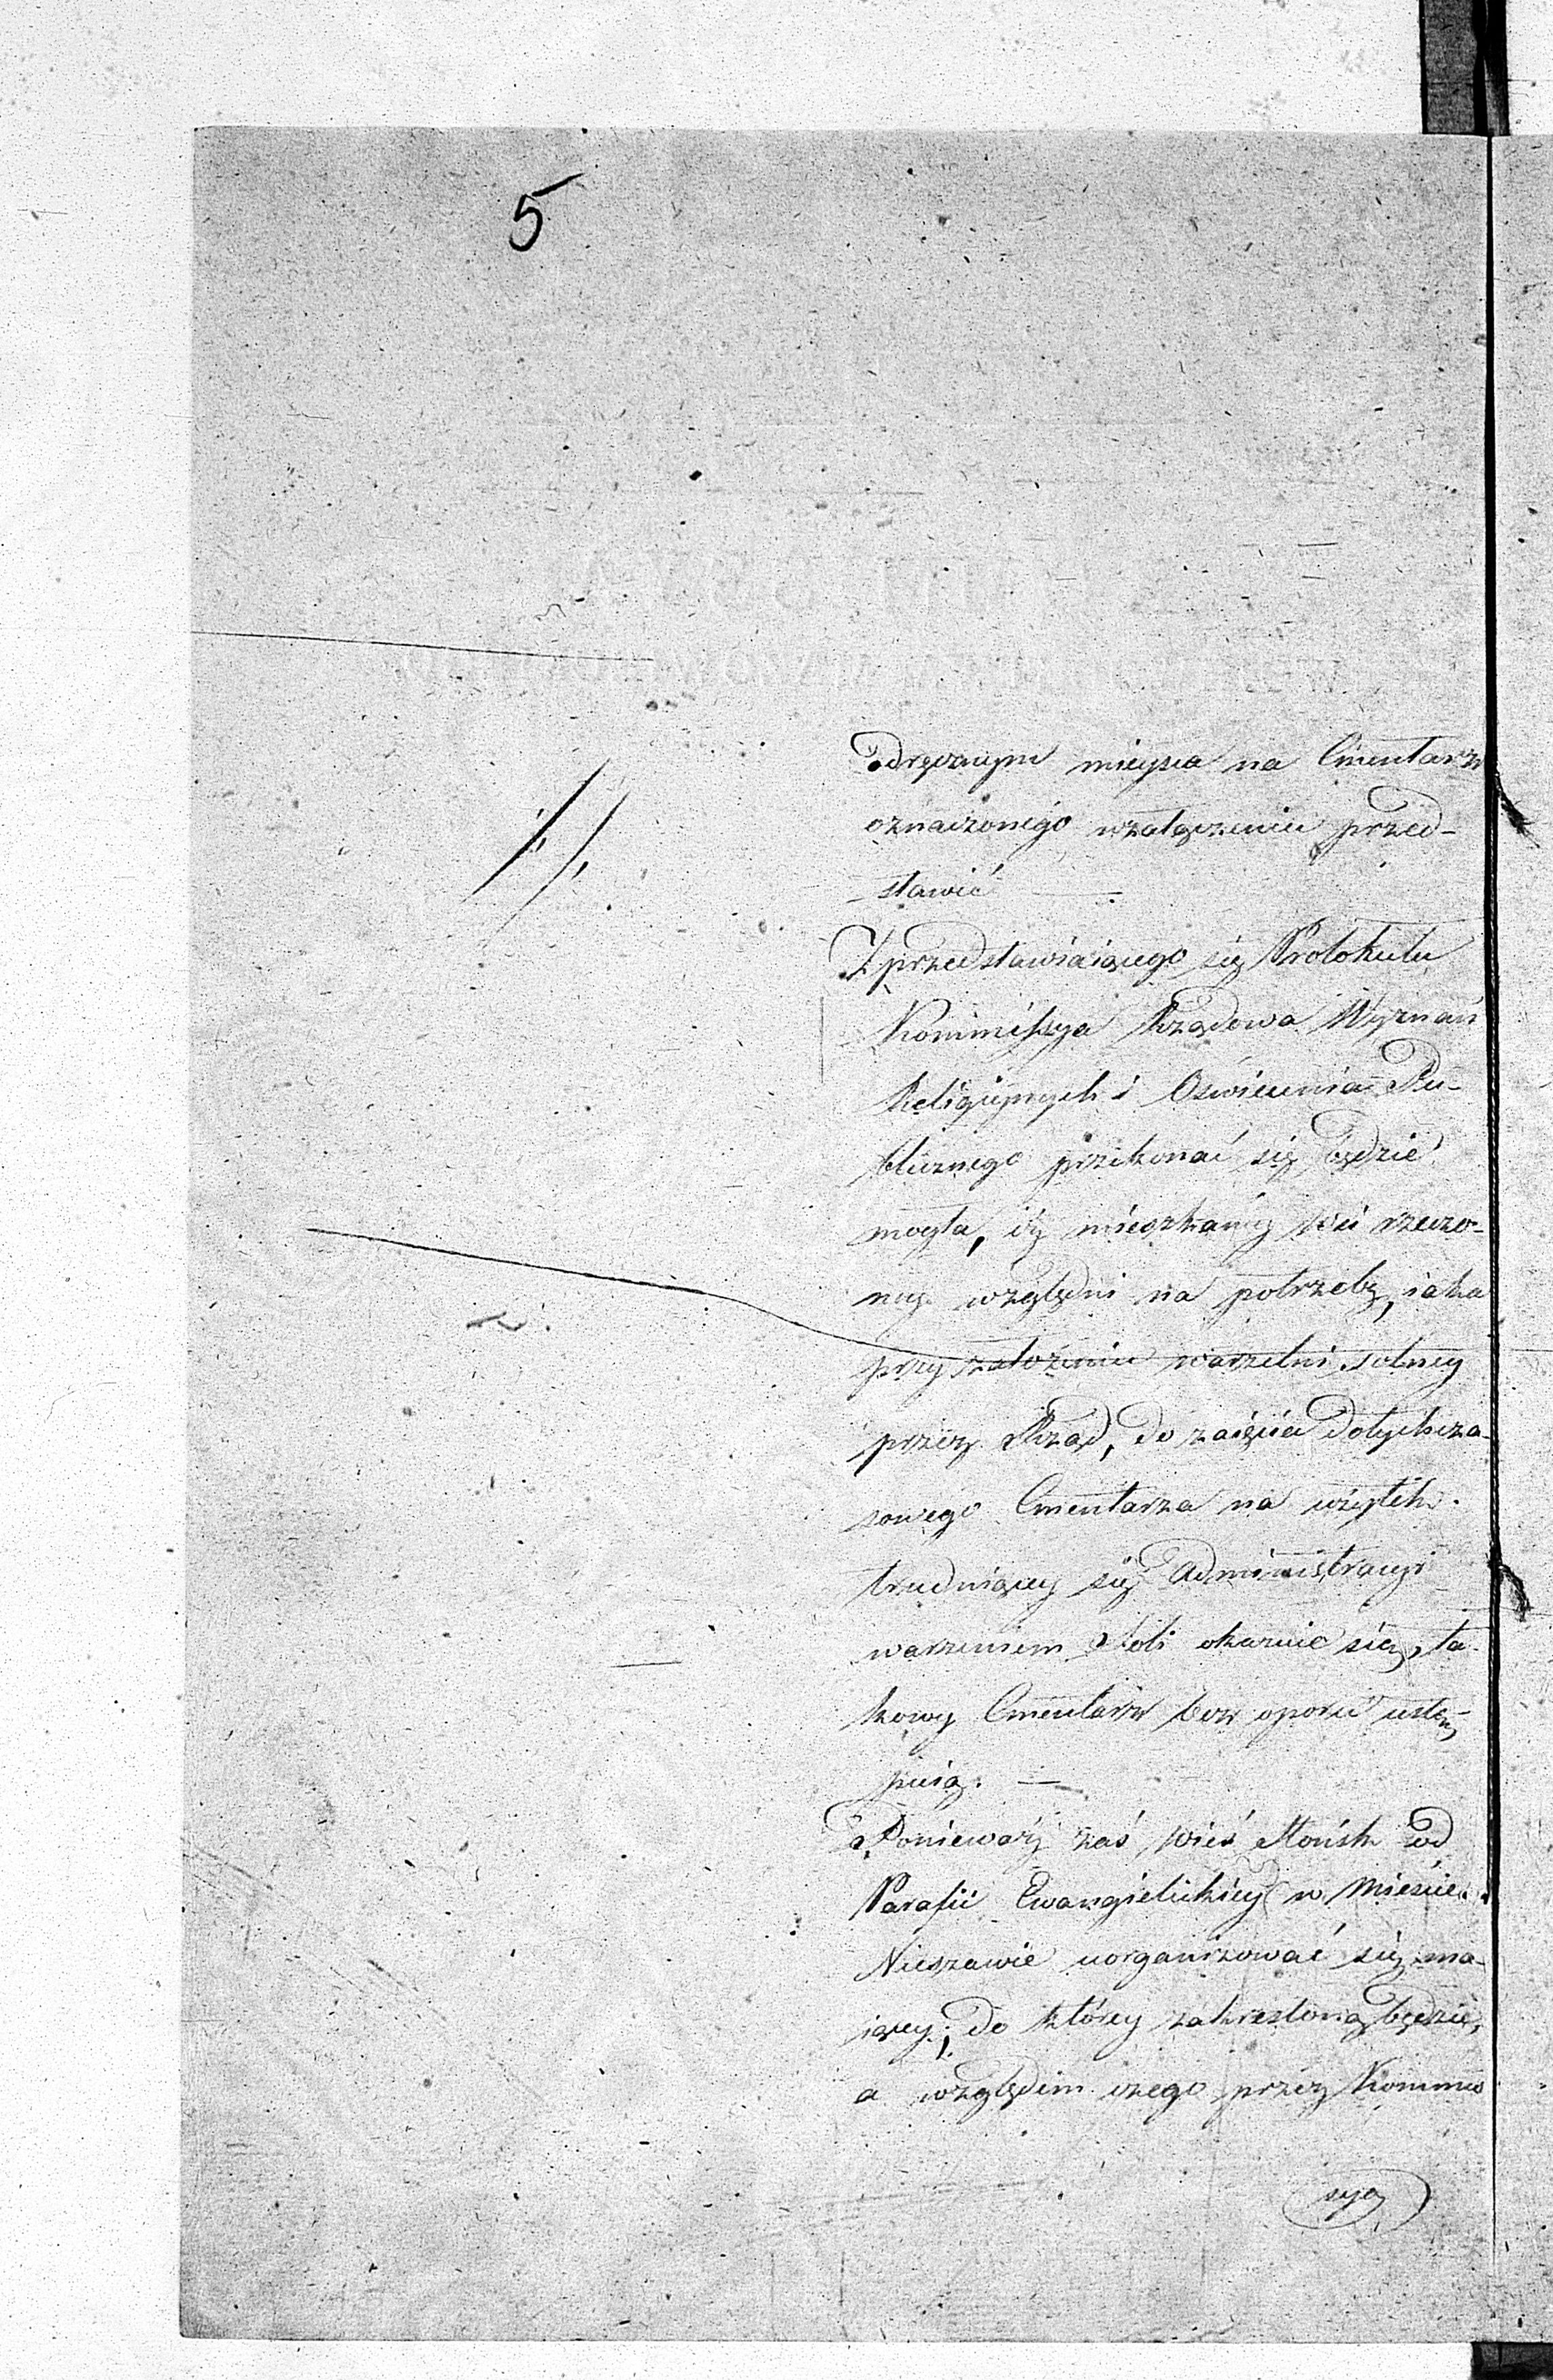 5
odręcznym mieysca na Cmentarz
oznaczonego wzałączeniu przed-
stawić
Z przedstawiaiącego się Protokułu
Kommissya Rządowa Wyznań
Religiynych i Oświecenia Pu-
blicznego przekonać się będzie
mogła, iż mieszkańcy wsi rzeczo-
ney względni na potrzebę, iaka
przy założeniu warzelni solney
przez Rząd, do zaięcia dotychcza-
sowego Cmentarza na użytek
trudniącey się Administracyi
warzeniem Soli okazuie się, ta-
kowy Cmentarz bez oporu ustę-
puią. —
Ponieważ zaś wieś Słońsk od
Parafii Ewangielickiey w Mieście
Nieszawie uorganizować się ma-
iącey, do którey zakreśloną będzie,
a względem czego przez Kommis
syą